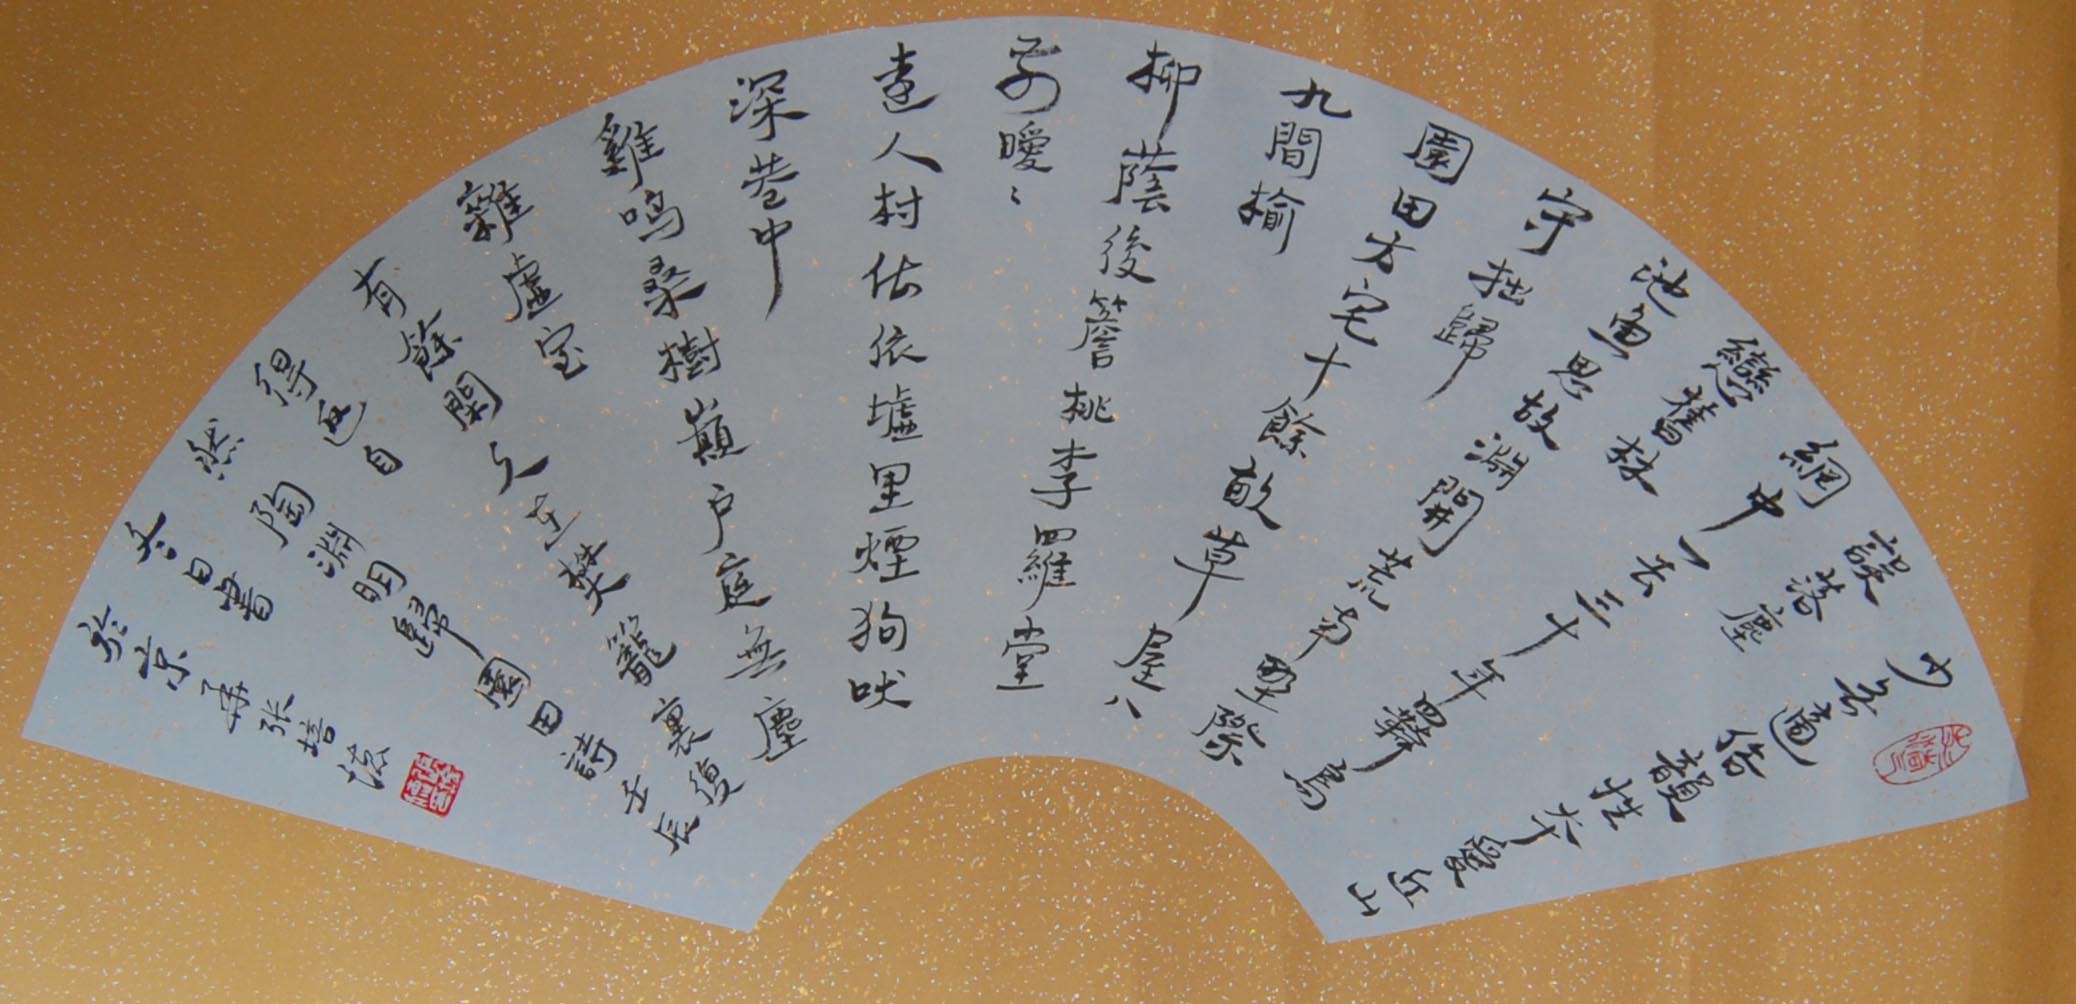 少无適俗韻性本愛丘山
誤落塵
網中一去三十年羈鳥
戀舊林
池魚思故淵開荒南野際
守拙歸
園田方宅十餘畝草屋八
九間榆
柳蔭後簷桃李羅堂
前曖〻
遠人村依依墟里煙狗吠
深巷中
雞鳴桑樹巔戶庭無塵
雜虛室
有餘閑久在樊籠裏復
得返自
然 陶淵明歸園田詩壬辰
冬日書
於京 张培